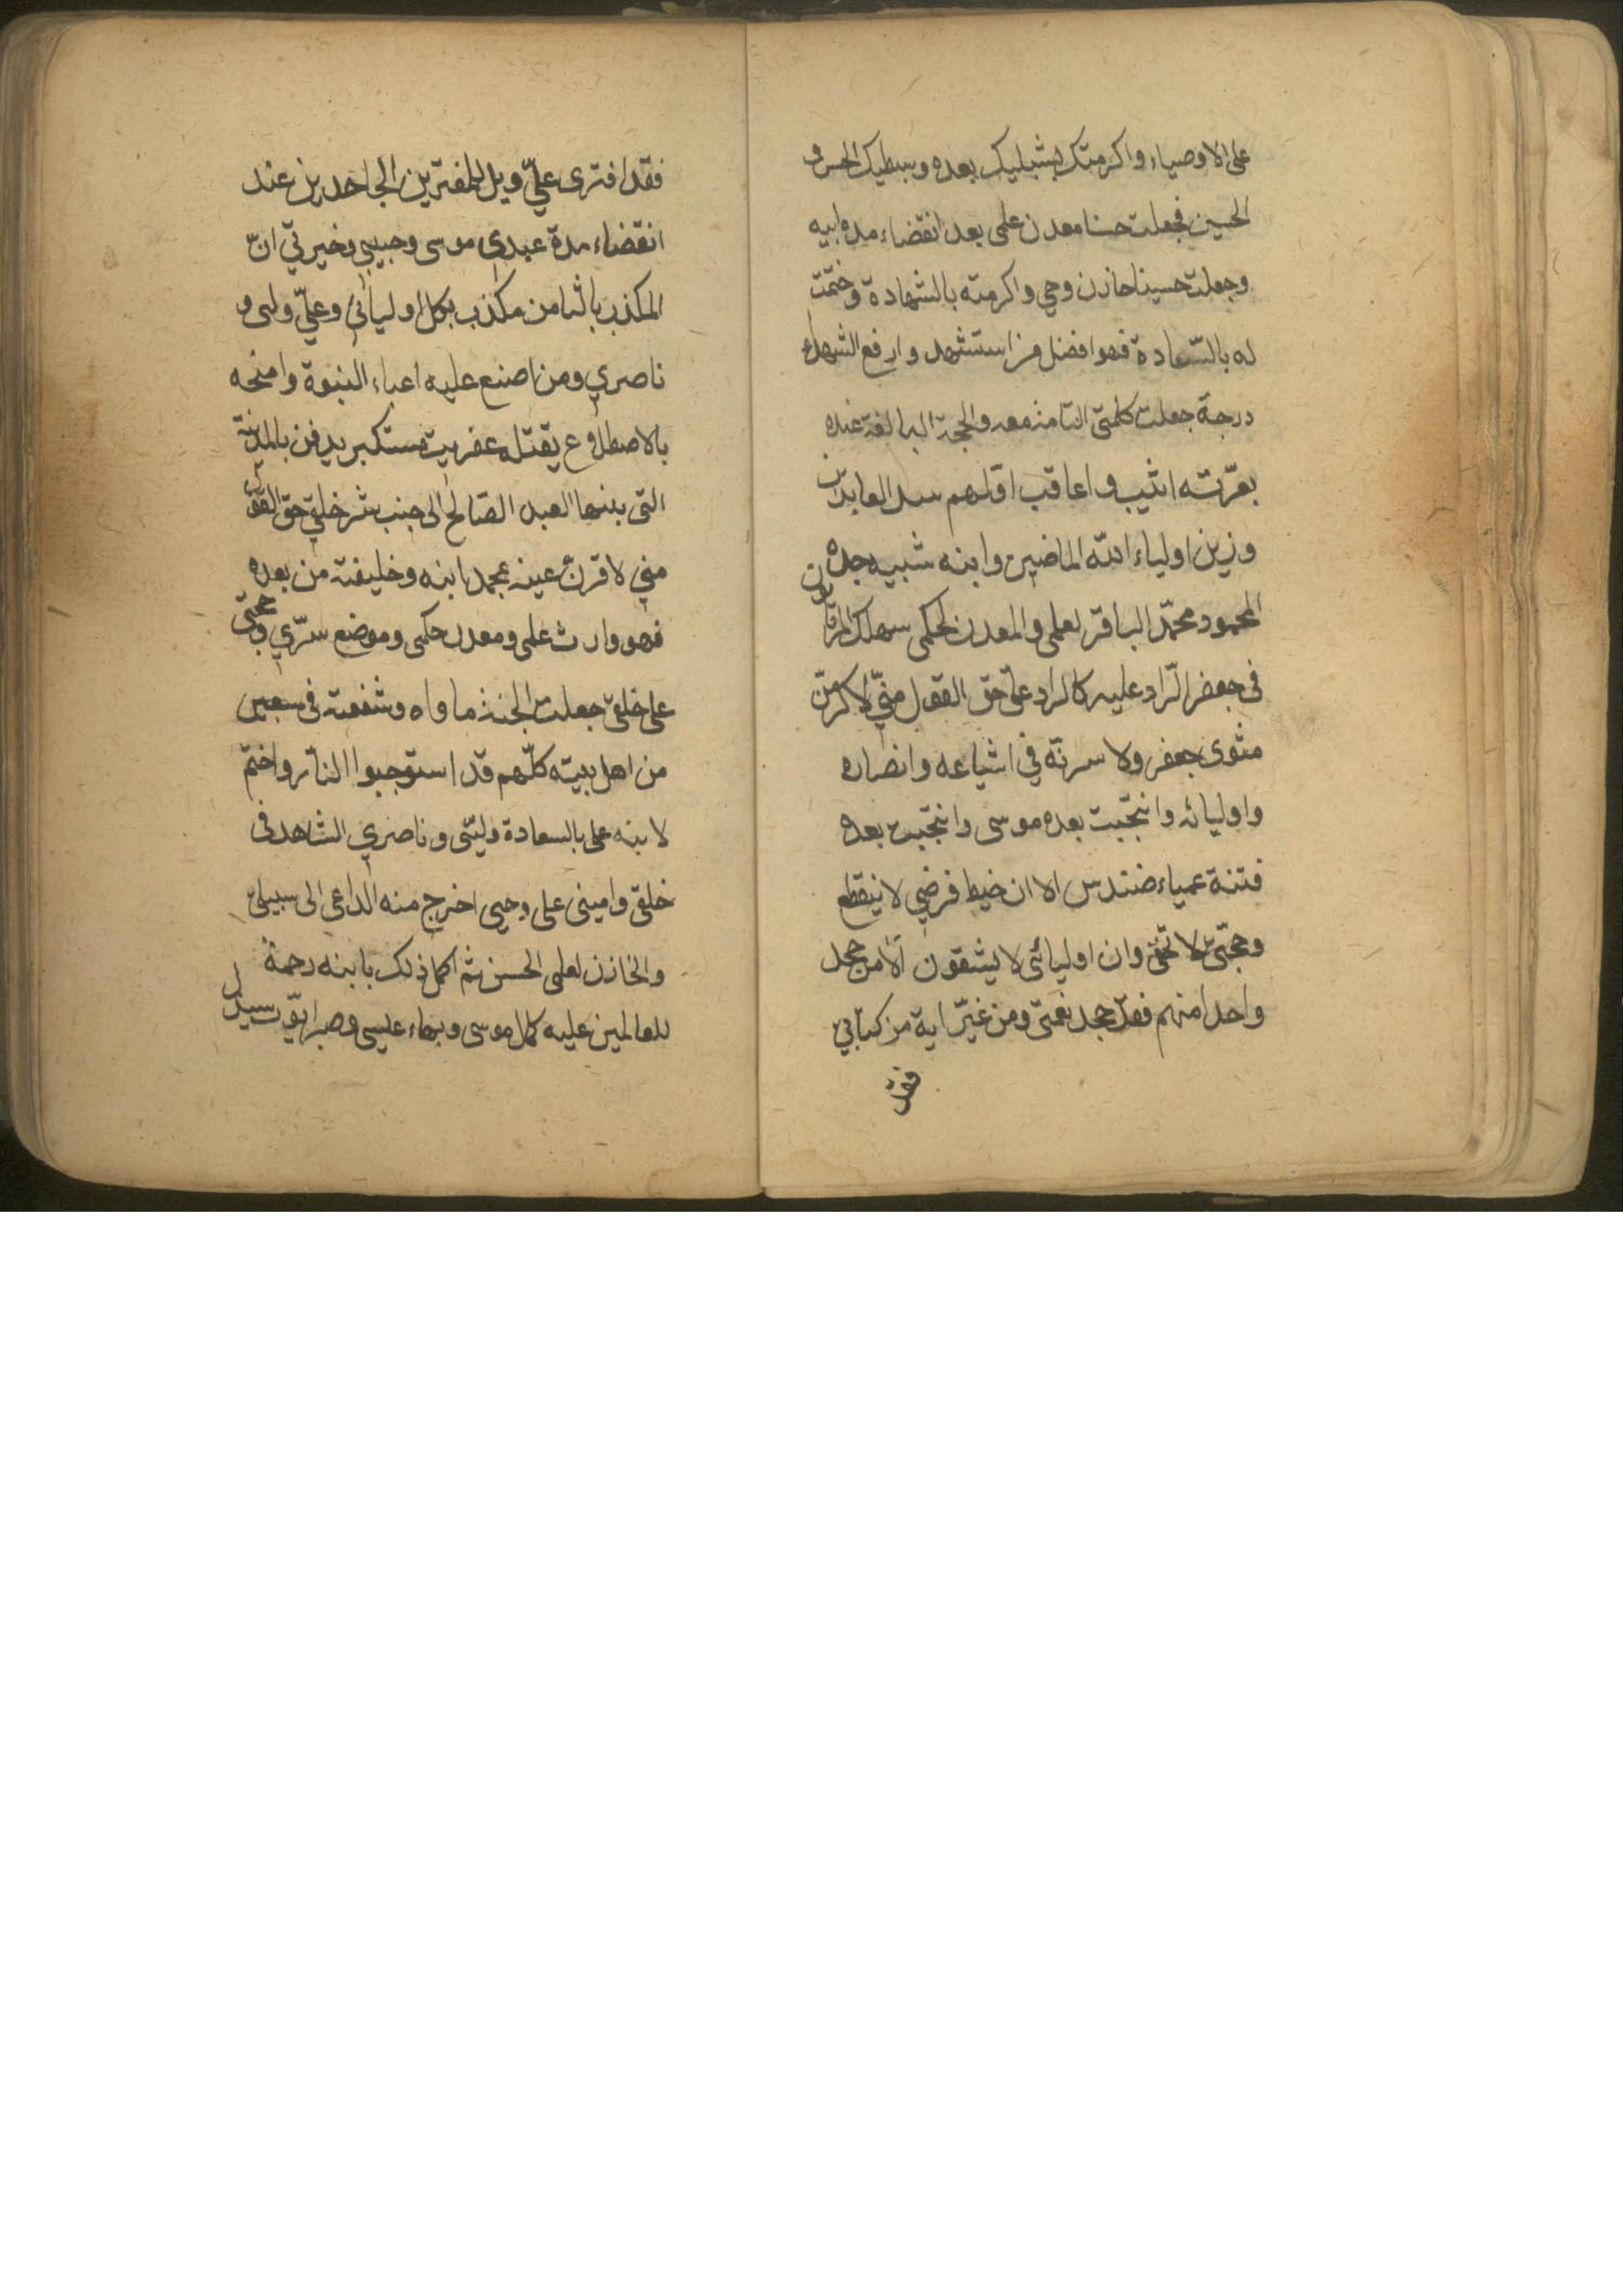 على الاوصياء واكرمتك بشبليك بعده وسبطيك الحسن و
الحسين فجعلت حسنا معدن علمي بعد انقضاء مدة ابيه
وجعلت حسينا خازن وحيي واكرمته بالشهادة وختمت
له بالسّعادة فهو افضل من استشهد وارفع الشهداء
درجة جعلت كلمتي التامة معه والحجة البالغة عنده
بعترته اثيب واعاقب اوّلهم سيد العابدين
وزين اولياء الله الماضين وابنه شبيه جده
المحمود محمّد الباقر لعلمي والمعدن لحكمي سهلك المرتابون
في جعفر الرّاد عليه كالراد عليّ حق القول منّي لاكرمنّ
مثوى جعفر ولاسرنّه في اشياعه وانصاره
واوليائه وانتجبت بعده موسى وانتجبت بعده
فتنة عمياء حندس الا ان خيط فرضي لا ينقطع
وحجّتي لا تخفى وان اوليائي لا يشقون الا من جحد
واحدا منهم فقد جحد نعمتي ومن غيّر اية من كتابي
فقد
فقد افترى عليّ وويل للمفترين الجاحدين عند
انقضاء مدة عبدي موسى وحبيبي وخيرتي انّ
المكذب بالثامن مكذب بكل اوليائي وعليّ وليي و
ناصري ومن اضع عليه اعباء النبوة وامنحه
بالاضطلاع يقتله عفريت مستكبر يدفن بالمدينة
التي بنيها العبد الصّالح الى جنب شر خلقي حق القول
مني لاقرنّ عينه بمحمد ابنه وخليفته من بعده
فهو وارث علمي ومعدن حكمي وموضع سرّي وحجتي
على خلقي جعلت الجنة ماواه وشفعته في سبعين
من اهل بيته كلّهم قد استوجبوا النار واختم
لابنه على بالسعادة وليّي وناصري الشاهد في
خلقي واميني على وحيي اخرج منه الداعي الى سبيلي
والخازن لعلمي الحسن ثم اكمل ذلك بابنه رحمة
للعالمين عليه كمال موسى وبهاء عيسى وصبر ايّوب سيذل